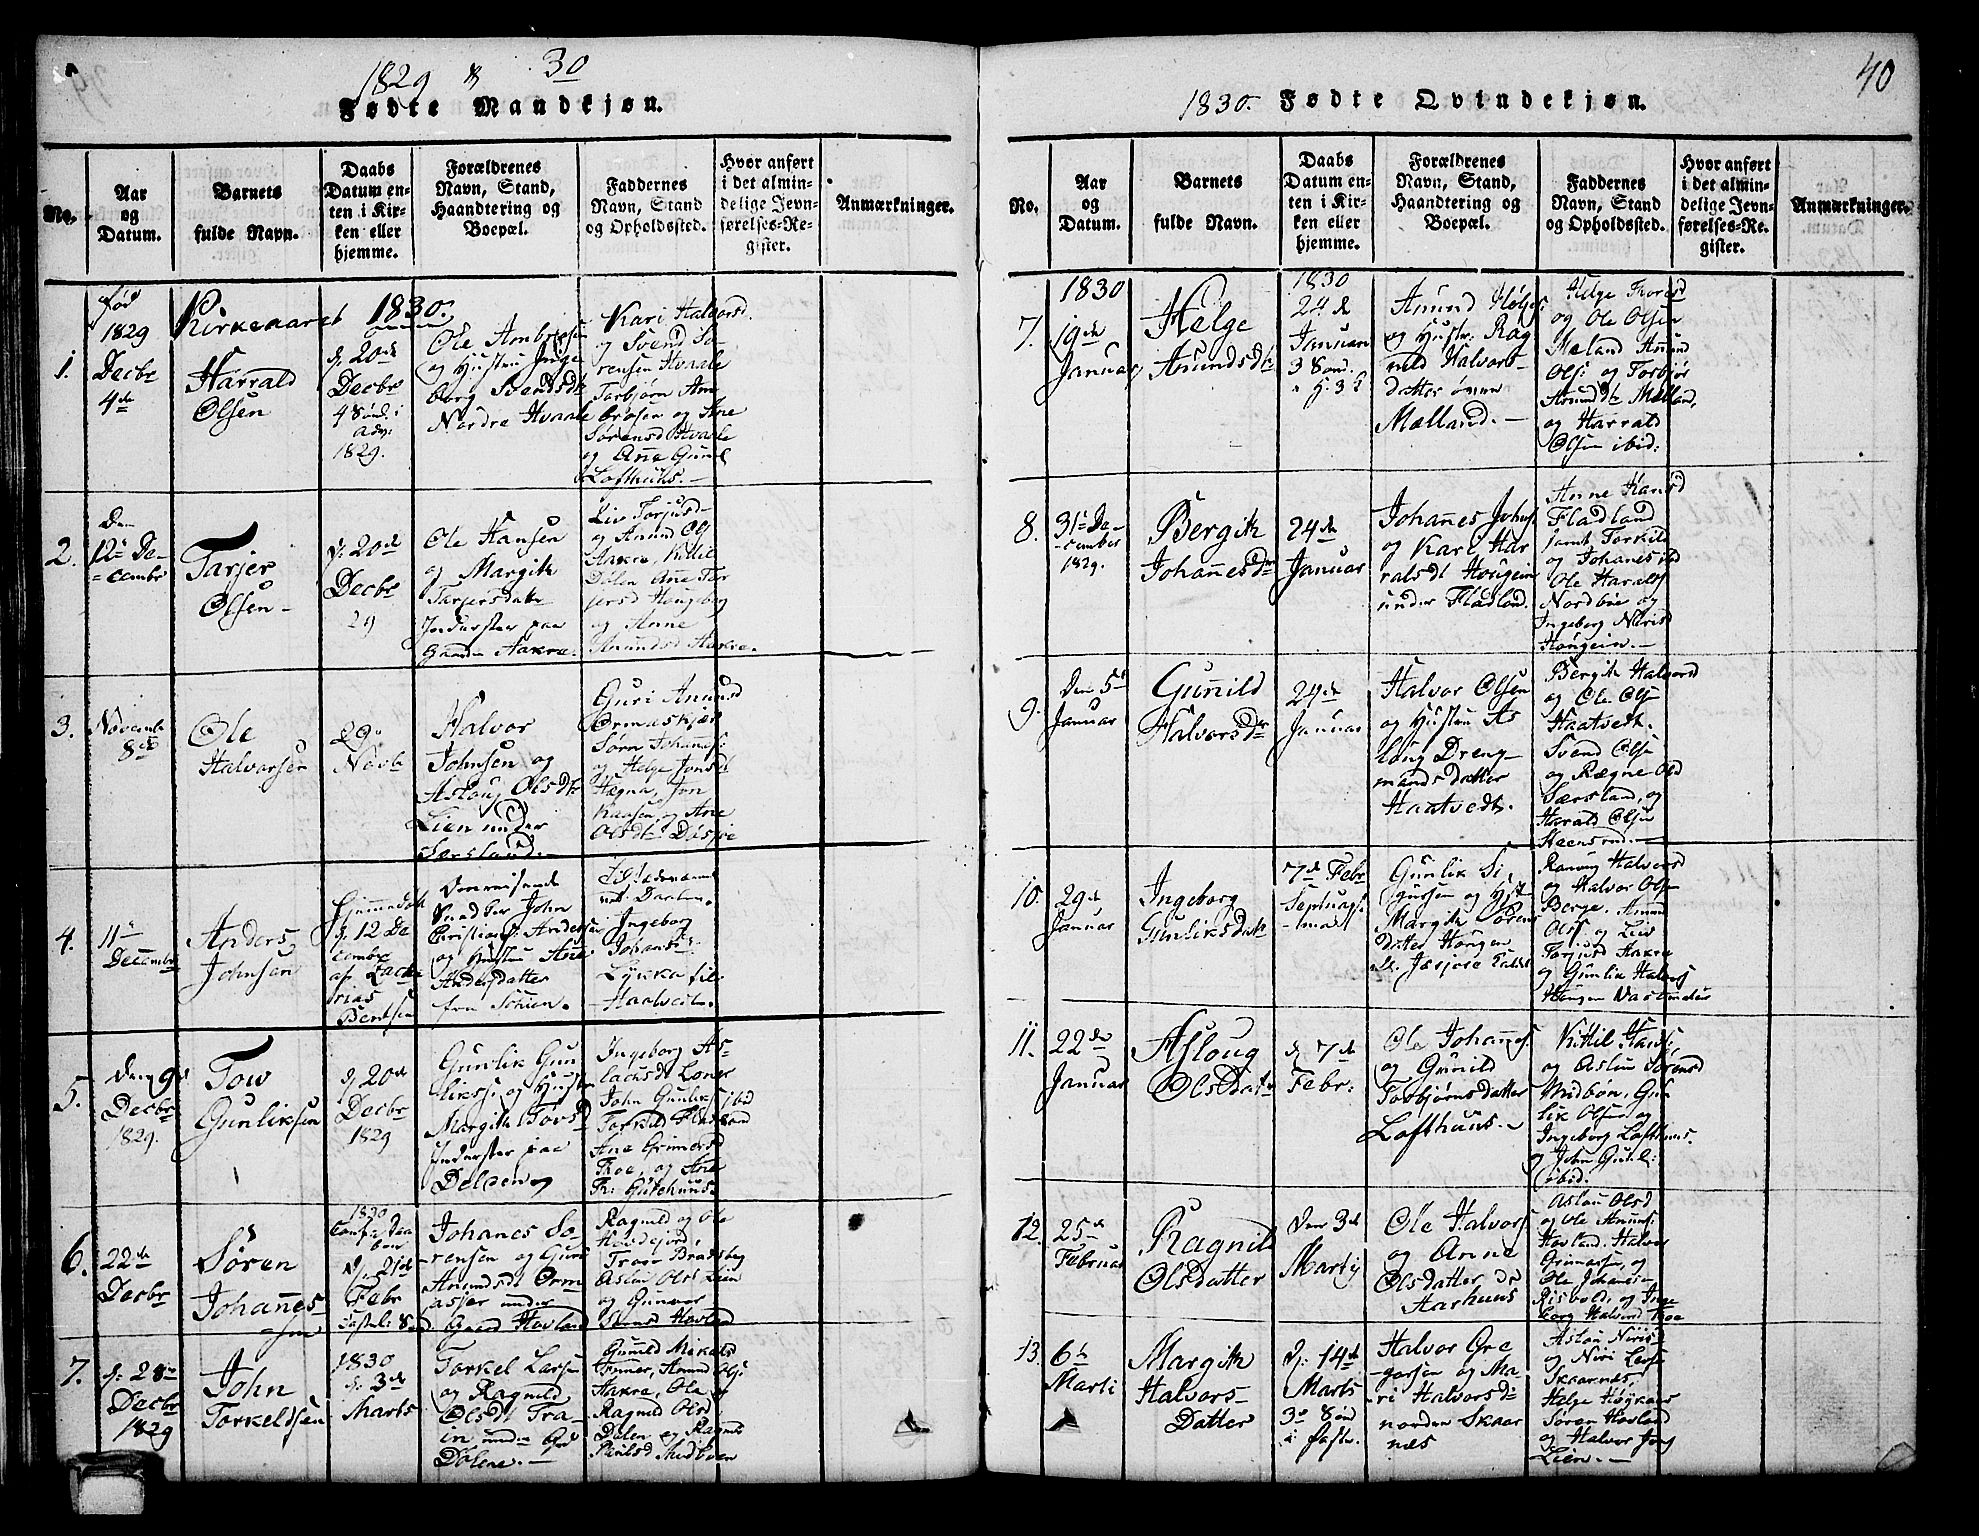 1829 & 30
Fødte Mandkjøn.
No.
Aar
og
Datum.
Barnets
fulde Navn.
Daabs
Datum en-
ten i Kir-
ken eller
hjemme.
Forældrenes
Navn, Stand,
Haandtering og
Boepæl.
Faddernes
Navn, Stand
og Opholdssted.
Hvor anført
i det almin-
delige Jevn-
førelses-Re-
gister.
Anmærkninger.
Kirkeaaret 1830.
1.
1829
Decbr
4de
Harrald
Olsen
d. 20de
Decbr
4 Sønd. i
adv:
1829.
Ole Ambrosen
og Hustru Inge
borg Svendsdtr
Nordre Hvaale
Kari Halvorsd.
og Svend Sø
rensen Hvaale
Torbjørn Am
brosen og Ane
Sørensd Hvaale
og Anne Gunl
Lofthuus.
2.
Den
12te De-
cembr
Tarjer
Olsen
d. 20de
Decbr
29
Ole Hansen
og Margith
Tarjersdatter
Inderster paa
Gaarden Aakre.
Liv Torjusd
og Amund Ols
Aakre, Kittil
Dølen Ane Tar
jersd Haugeborg
og Anne
Amundsd Aakre.
3.
Novemb
8de
Ole
Halvorsen
29.
Novb
Halvor
Johnsen og
Asloug Olsdtr
Lien under
Sørsland.
Guri Amunsd
Ormaskjær
Sørn Johanns:
og Helge Jonsd
Hægna, Jon
og Ane
Olsdtr
4.
11te
Decembr
Anders
Johnsen
Hjemmedøbt
d. 12 De
cembr
af Zacha
rias
Bentsen
Omreisende
John
Christians: Andersen
og Hustru Anne
Andersdatter
fra Schien.
Ingeborg
Johans:
Lykka til
Haatvet.
5.
den 9de
Decbr
1829.
Tow
Gunliksen
d. 20de
Decbr
1829
Gunlik Gun
likss: og Hustru
Margith Tovsd
Inderster paa
Dølen
Ingeborg As-
lachsdt Loner
John Gunliks ibd
Torkild Fladland
Ane Grimersd
Kroe, og Ane
6.
22de
Decbr
Søren
Johannes-
sen
1830
d. 21de
Febr
Fastel: Sønd
Johanes Sø-
rensen og Guri
Amundsdt Orm
asjer under
Gaard Hovland
Ragnild og Ole
Aslou Ols Lien
og Gunvor
Hovland
7.
d: 28de
Decbr
1829
John
Torkeldsen
1830
d: 3de
Marts
Torkel Larsen
og Ragnild
Olsdt Tra-
in under Grd
Dølene.
Gunild Mikelsd
Amund Ols:
Aakre, Ole og
Ragnild Olsd
Dølen og Ragne
Paulsd Midbøen
40
1830. Fødte Qvindekjøn.
No.
Aar
og
Datum.
Barnets
fulde Navn.
Daabs
Datum en-
ten i Kir-
ken eller
hjemme.
Forældrenes
Navn, Stand,
Haandtering og
Boepæl.
Faddernes
Navn, Stand
og Opholdssted.
Hvor anført
i det almin-
delige Jevn-
førelses-Re-
gister.
Anmærkninger.
7.
1830
19de
Januar
Helge
Amundsdtr
1830
24de
Januari
3 Sønd.
Amund Helges:
og Hustr: Rag
nild Halvors-
datter
Mælland.
Helge Toresd
og Ole Olsen
Meland Amund
Ols: og Torbjør
Amundsdtr Melland,
og Harrald
Olsen ibid:
8.
31te De-
cember
1829.
Bergith
Johannesdtr
24de
Januar
Johannes Johns
og Kari Har
ralsdt Hougein
under Fladland.
Anne Hansd
Fladland
samt Torkild
og Johanes ibd
Ole Haralds
Nordbøe og
Ingeborg Nirisd
Hougein.
9.
Den 5te
Januar
Gunild
Halvorsdtr
24de
Januar
Halvor Olsen
og Hustru As
loug Dreng-
mandsdatter
Haatvedt.
Bergith Halvorsd
og Ole Ols
Haatvedt.
Svend Olsen
og Rægne Olsd
Sørsland, og
Harald Olsen
10.
29de
Januar
Ingeborg
Gunliksdatr
7de Febr
Septuages-
ima
Gunlik Si-
gursen og Hust
Margith Sørens
datter Hougen
Ranug Halvorsd
og Halvor Olsen
Berge. Amund
Ols: og Liv
Torjusd Aakre
og Gunlik Halvors
Haugen
11.
22de
Januar
Asloug
Olsdatr
d. 7de
Febr:
Ole Johanns:
og Gunild
Torbjørnsdatter
Lofthuus.
Kittil Hans:
og Aslou Sørensd
Midbøn, Gun
lik Olsen og
Ingeborg Lofthuus.
og John Gunl:
ibid.
12.
25de
Februar
Ragnild
Olsdatter
Den 3de
Martij
Ole Halvors
og Anne
Olsdatter
Aarhuus
Aslou Olsd
og Ole Amuns:
Hovland. Halvor
Grimersen, og
Ole Johanes
Risvold, og Inge
borg Halvorsd Kroe
13.
6te
Marti
Margith
Halvors-
Datter
d: 14de
Marts
3de Sønd
i faste.
Halvor Gre
gersen og Ma-
ri Halvorsd:
norden Skaar
næs
Aslou Niris
og Niri Lars
Skaarnæs,
Helge
Søren Hovland
og Halvor Jons
Lien.